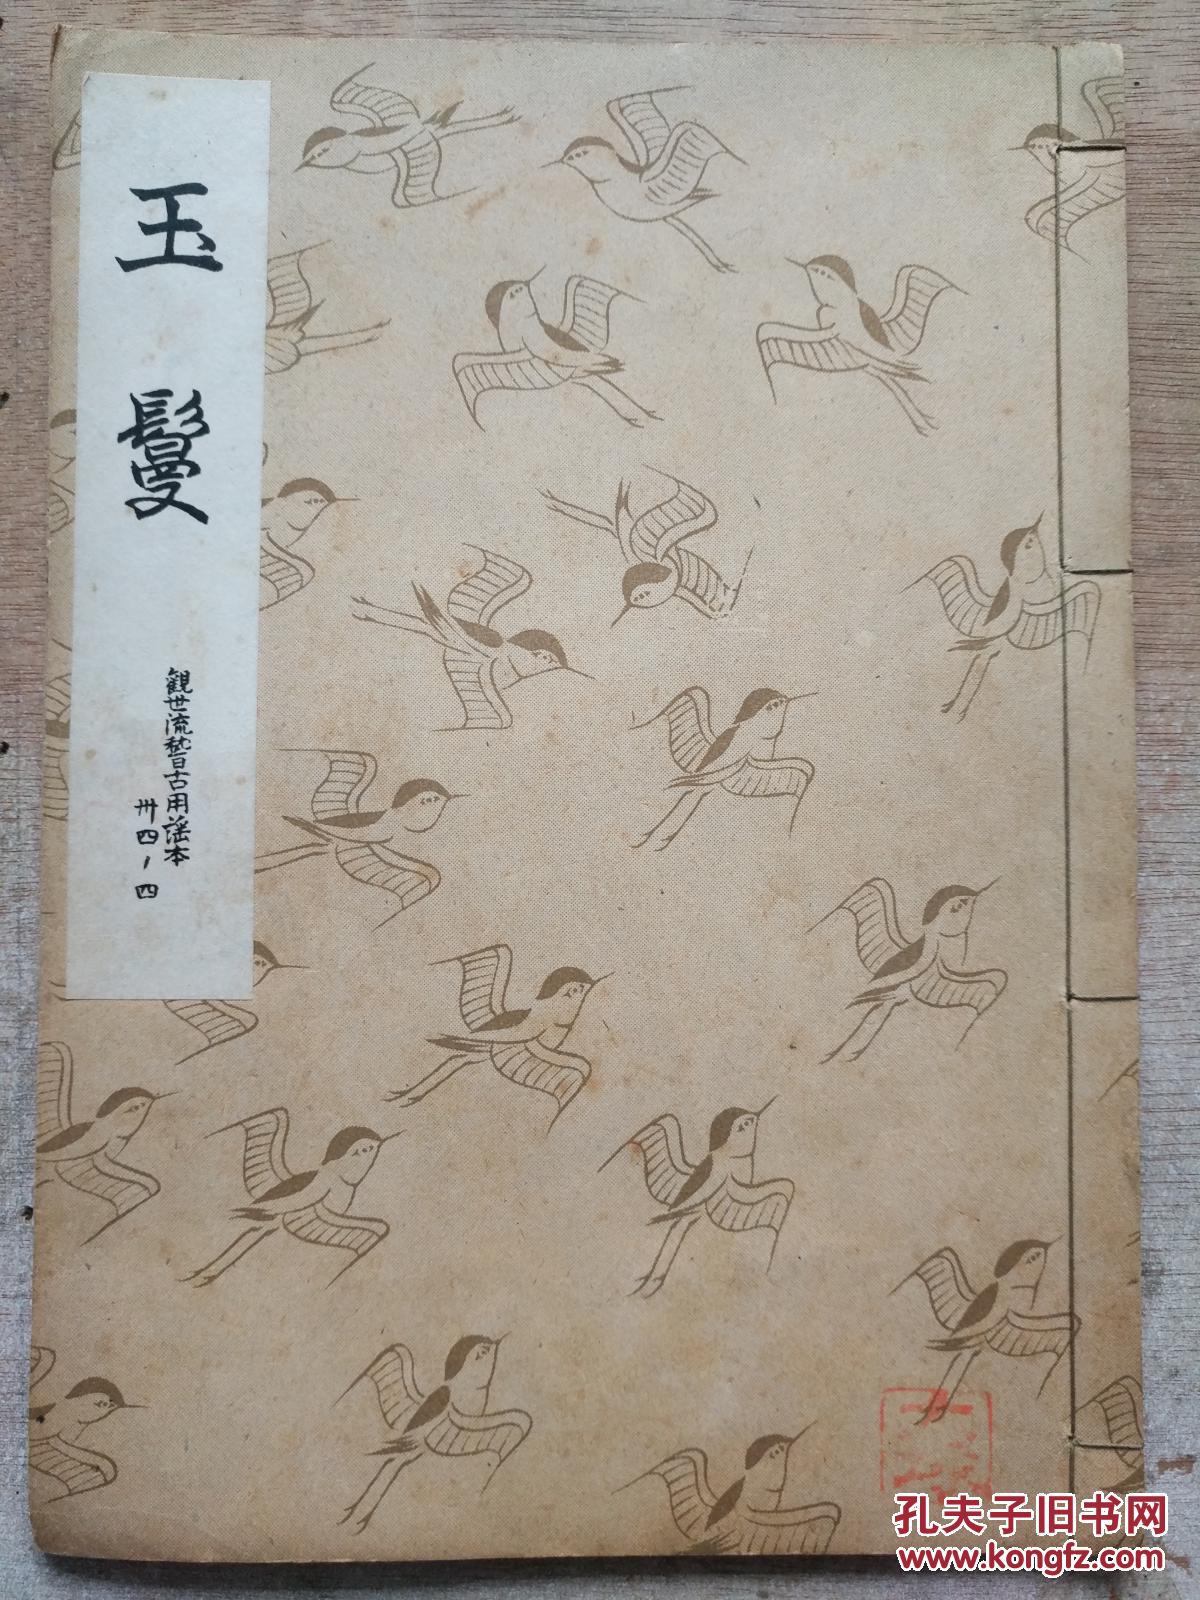 玉鬘
観世流稽古用謡本
卅四ノ四
孔夫子旧书网
www.kongfz.com